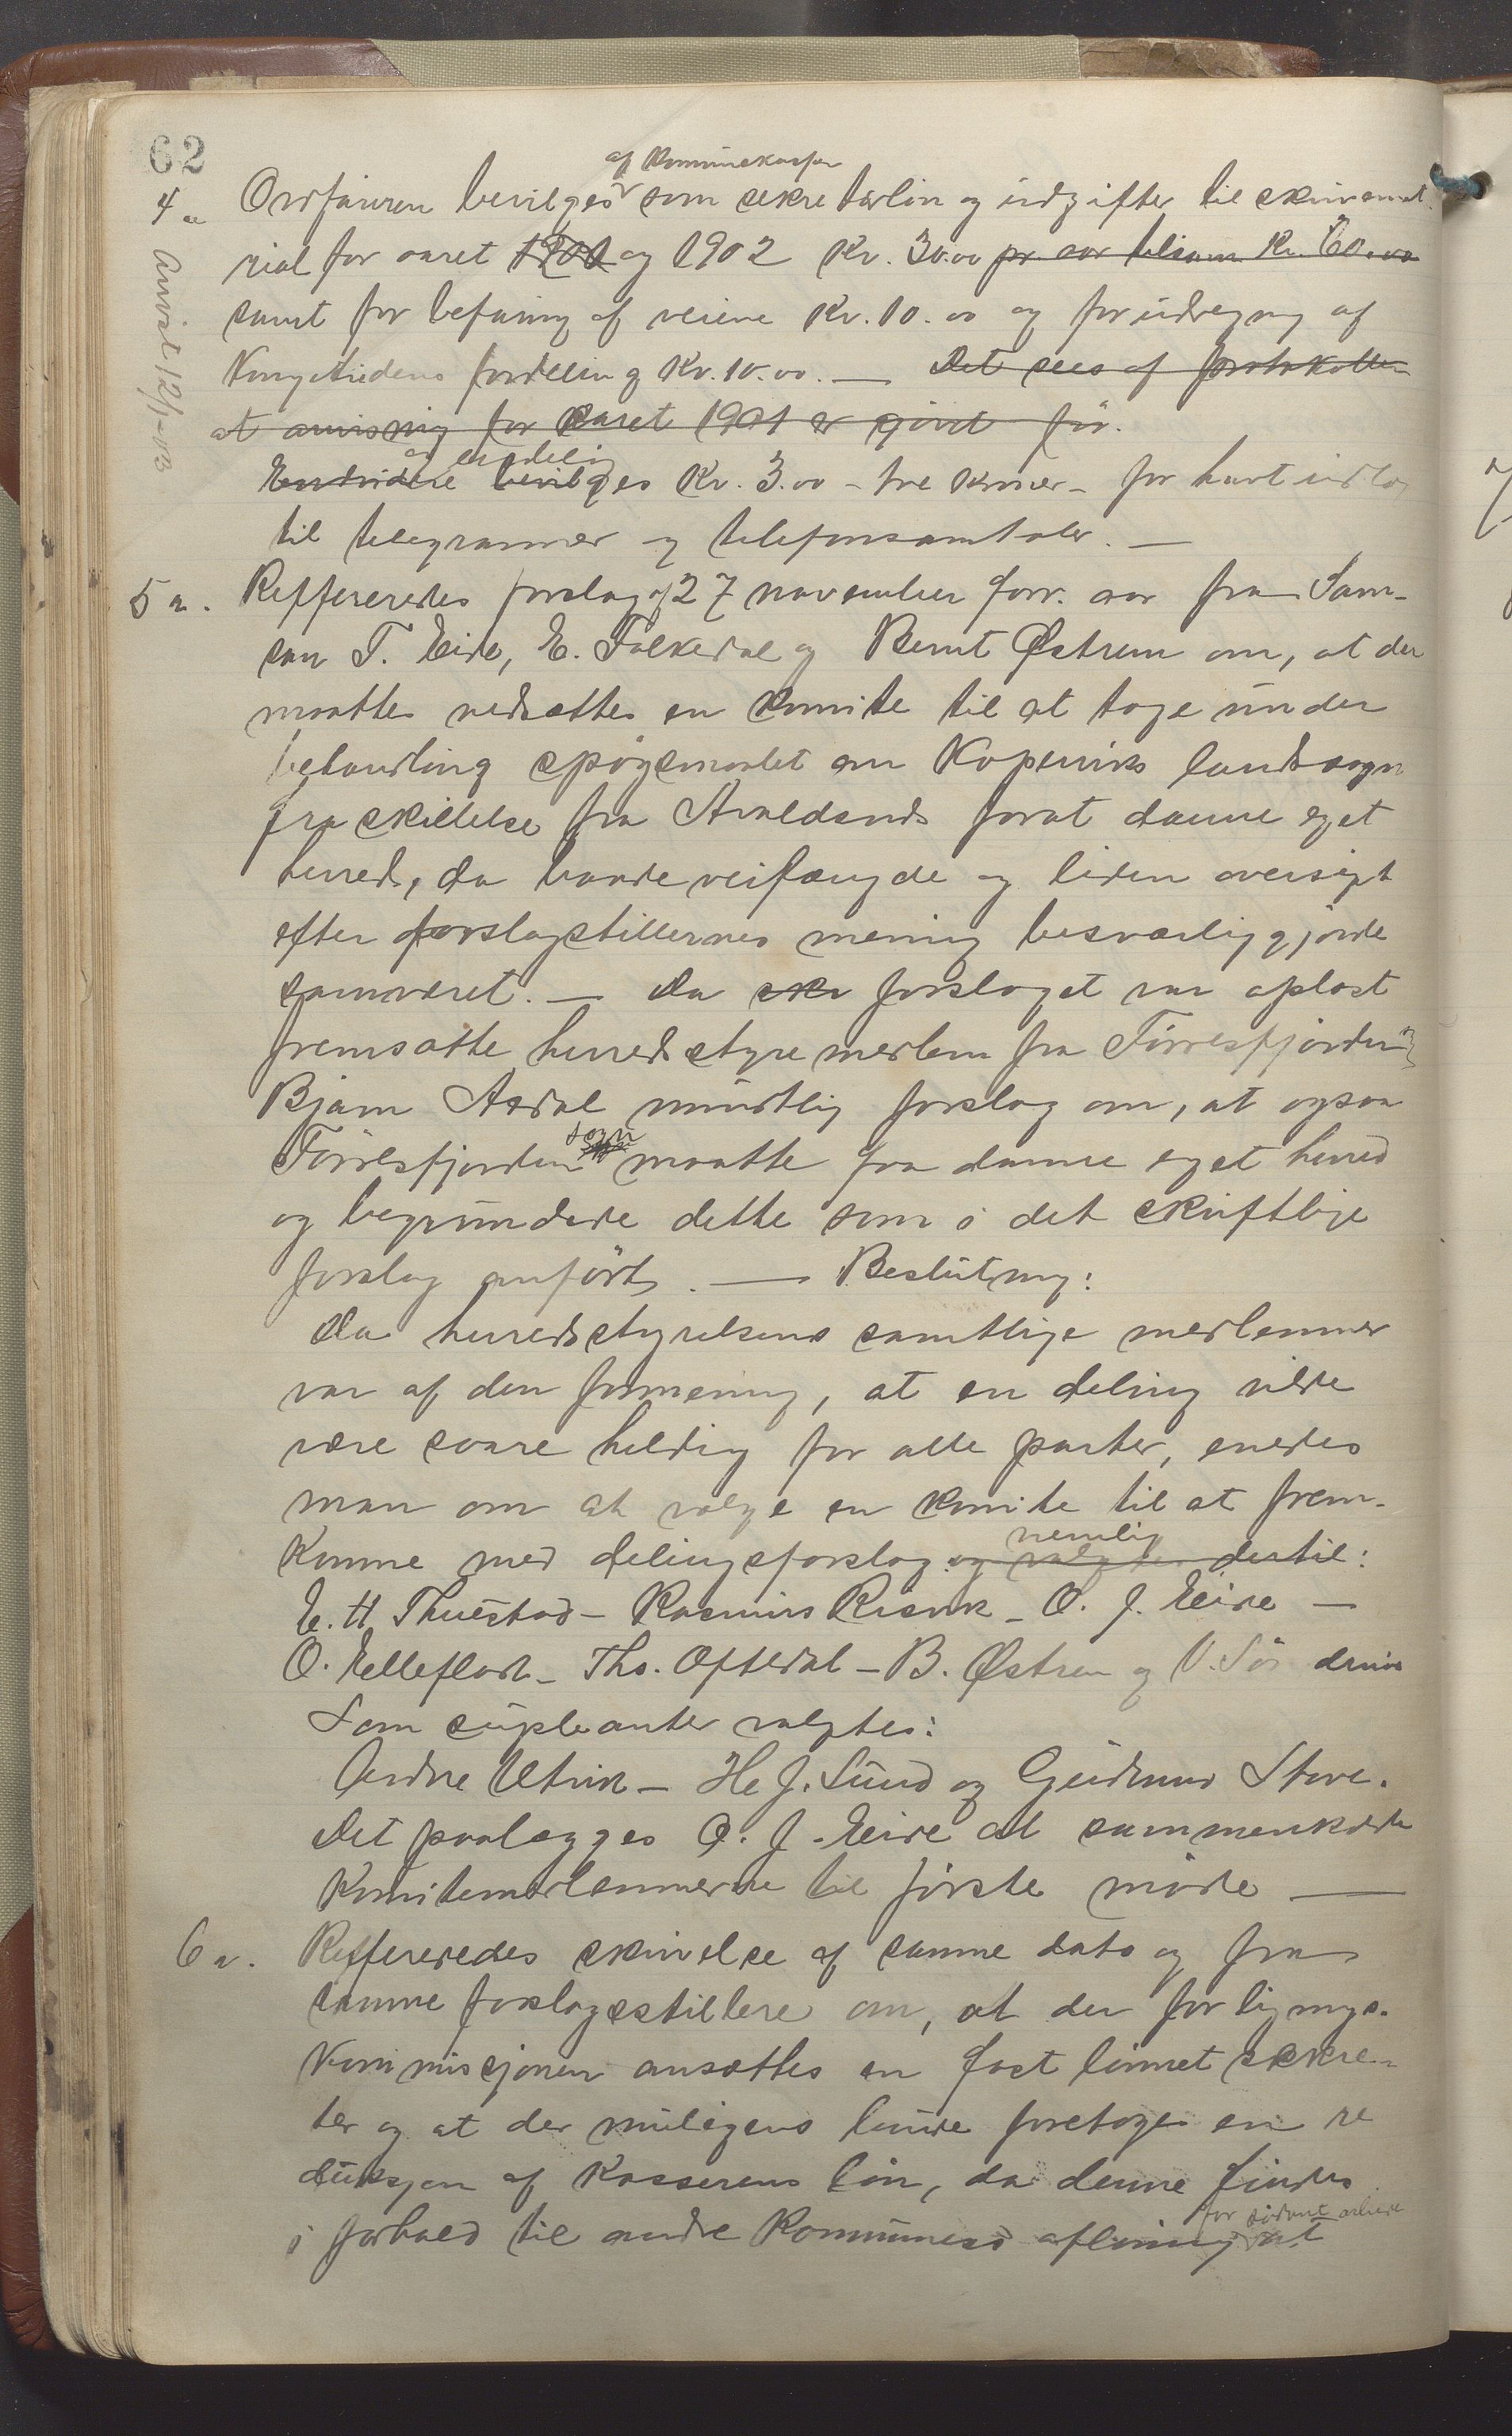 62
af Kommunekassen
4 a Ordføreren bevilges som sekretærløn og udgifter til skrivemat
rial for aaret 1901 og 1902 Kr. 30.00 pr. aar tilsam. Kr. 60.00
samt for befaring af veiene Kr. 10.00 og for udregning af
Kongetiendens fordeling Kr. 10.00. — Det sees af protokollen
at anvisning for aaret 1901 er gjort før.
og endelig
Endvidere bevilges Kr. 3.00 – tre kroner – for havt udlæg
til telegrammer og telefonsamtaler. —
Anvist 12/1-03
5 a. Reffereredes forslag af 27 november forr. aar fra Sam-
son T. Eide, E. Falkedal og Bernt Østrem om, at der
maatte nedsættes en komite til at tage under
behandling spøgsmaalet om Kopervik landsogn
fraskillelse fra Avaldsnes forat danne eget
herred, da baade veilængde og liden oversigt
efter forslagstillernes mening besværliggjorde
samværet. — Da skr forslaget var oplæst
fremsatte herredstyremedlem fra Førresfjorden
Bjørn Aadal mundtlig forslag om, at ogsaa
sogn
Førresfjorden maatte faa danne eget herred
og begrundede dette som i det skriftlige
forslag anført. — Beslutning:
Da herredsstyrelsens samtlige medlemmer
var af den formening, at en deling vilde
være svare heldig for alle parter, enedes
man om at vælge en komite til at frem-
nemlig
komme med delingsforslag og valgtes dertil:
E. H. Thuestad – Rasmus Risvik – O. J. Eide —
O. Elleflodt – Ths. Oftedal – B. Østrem og V. Sør
Som supleanter valgtes:
Andre Utvik – He J. Sund og Gudmund Stove.
Det paalægges O. J. Eide at sammenkalde
Komitemedlemmerne til første møde —
6 a. Reffereredes skrivelse af samme dato og fra
samme forslagsstillere om, at der for lignings-
Kommissjonen ansættes en fast lønnet sekre-
tær og at der muligens burde foretages en re
duksjon af Kasserens løn, da denne findes
for sådant arbeide
i forhold til andre Kommuners aflønning at